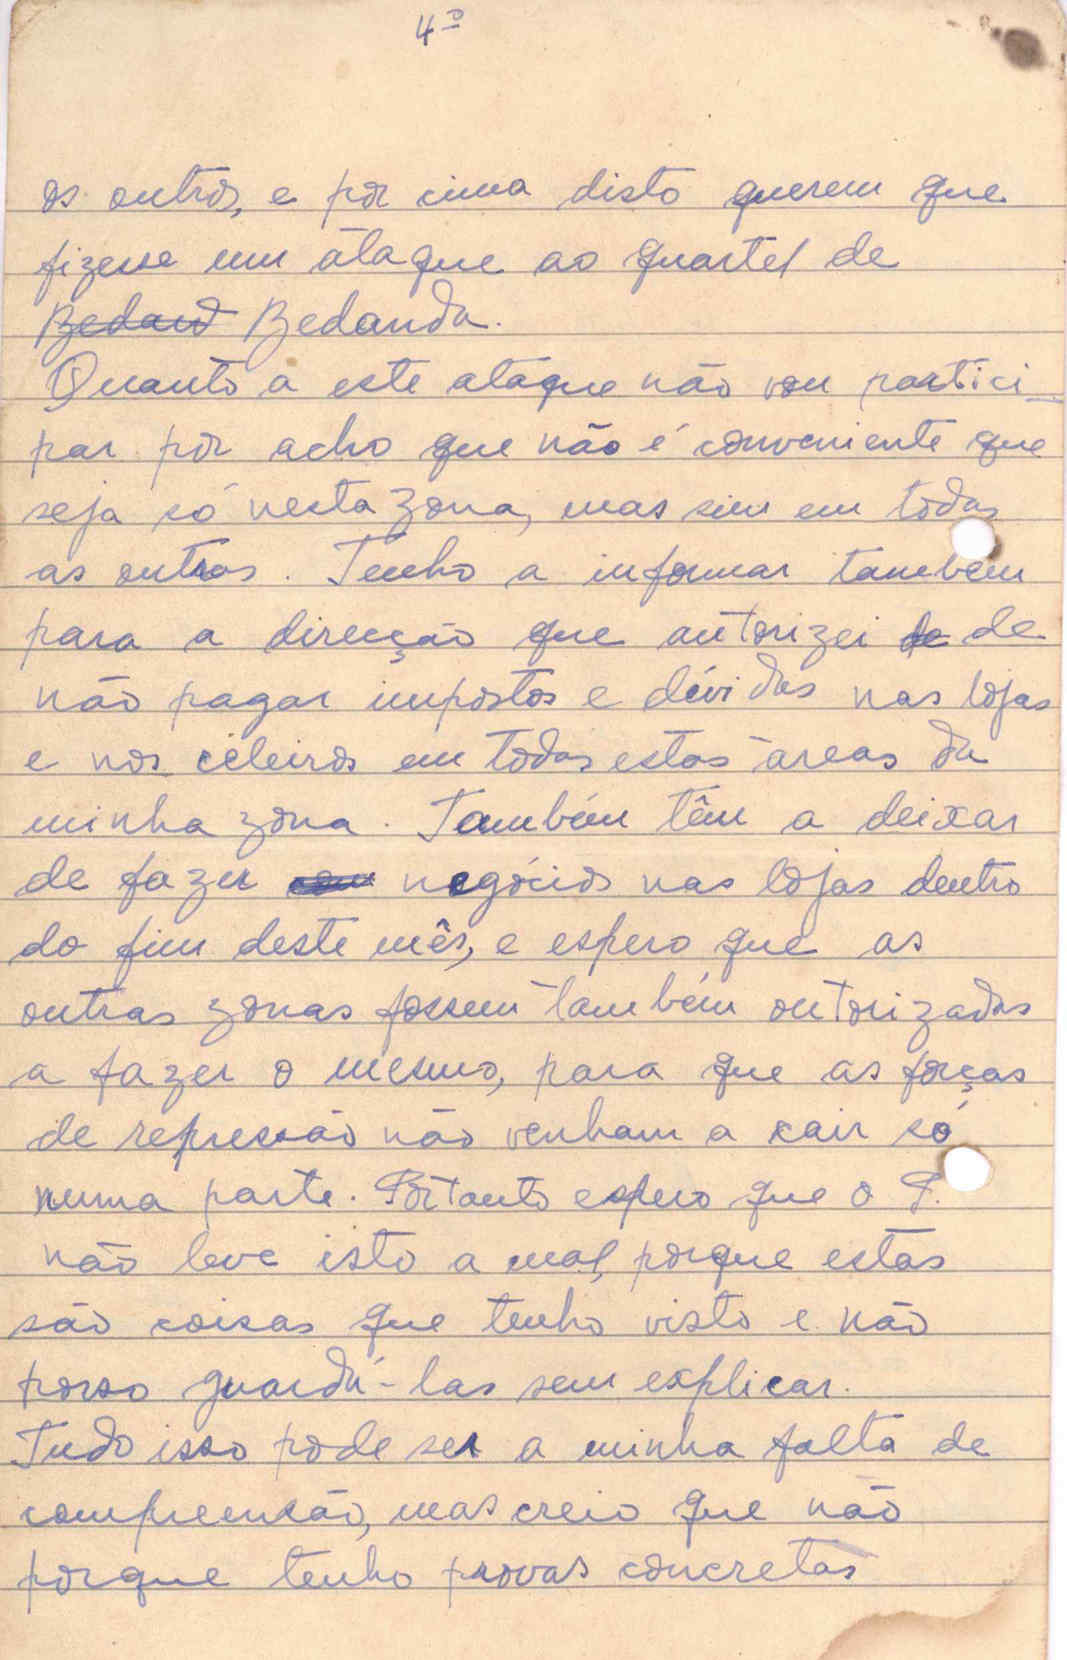 4º
os outros, e por cima disto querem que
fizesse um ataque ao quartel de
Bedand Bedanda.
Quanto a este ataque não vou partici-
par por acho que não é conveniente que
seja só nesta zona, mas sim em todas
as outras. Tenho a informar também
para a direcção que autorizei de de
não pagar impostos e dívidas nas lojas
e nos celeiros em todas estas áreas da
minha zona. Também têm a deixar
de fazer com negócios nas lojas dentro
do fim deste mês, e espero que as
outras zonas fossem também autorizadas
a fazer o mesmo, para que as forças
de repressão não venham a cair só
numa parte. Portanto espero que o P.
não leve isto a mal, porque estas
são coisas que tenho visto e não
posso guardá-las sem explicar.
Tudo isso pode ser a minha falta de
compreensão, mas creio que não
porque tenho provas concretas